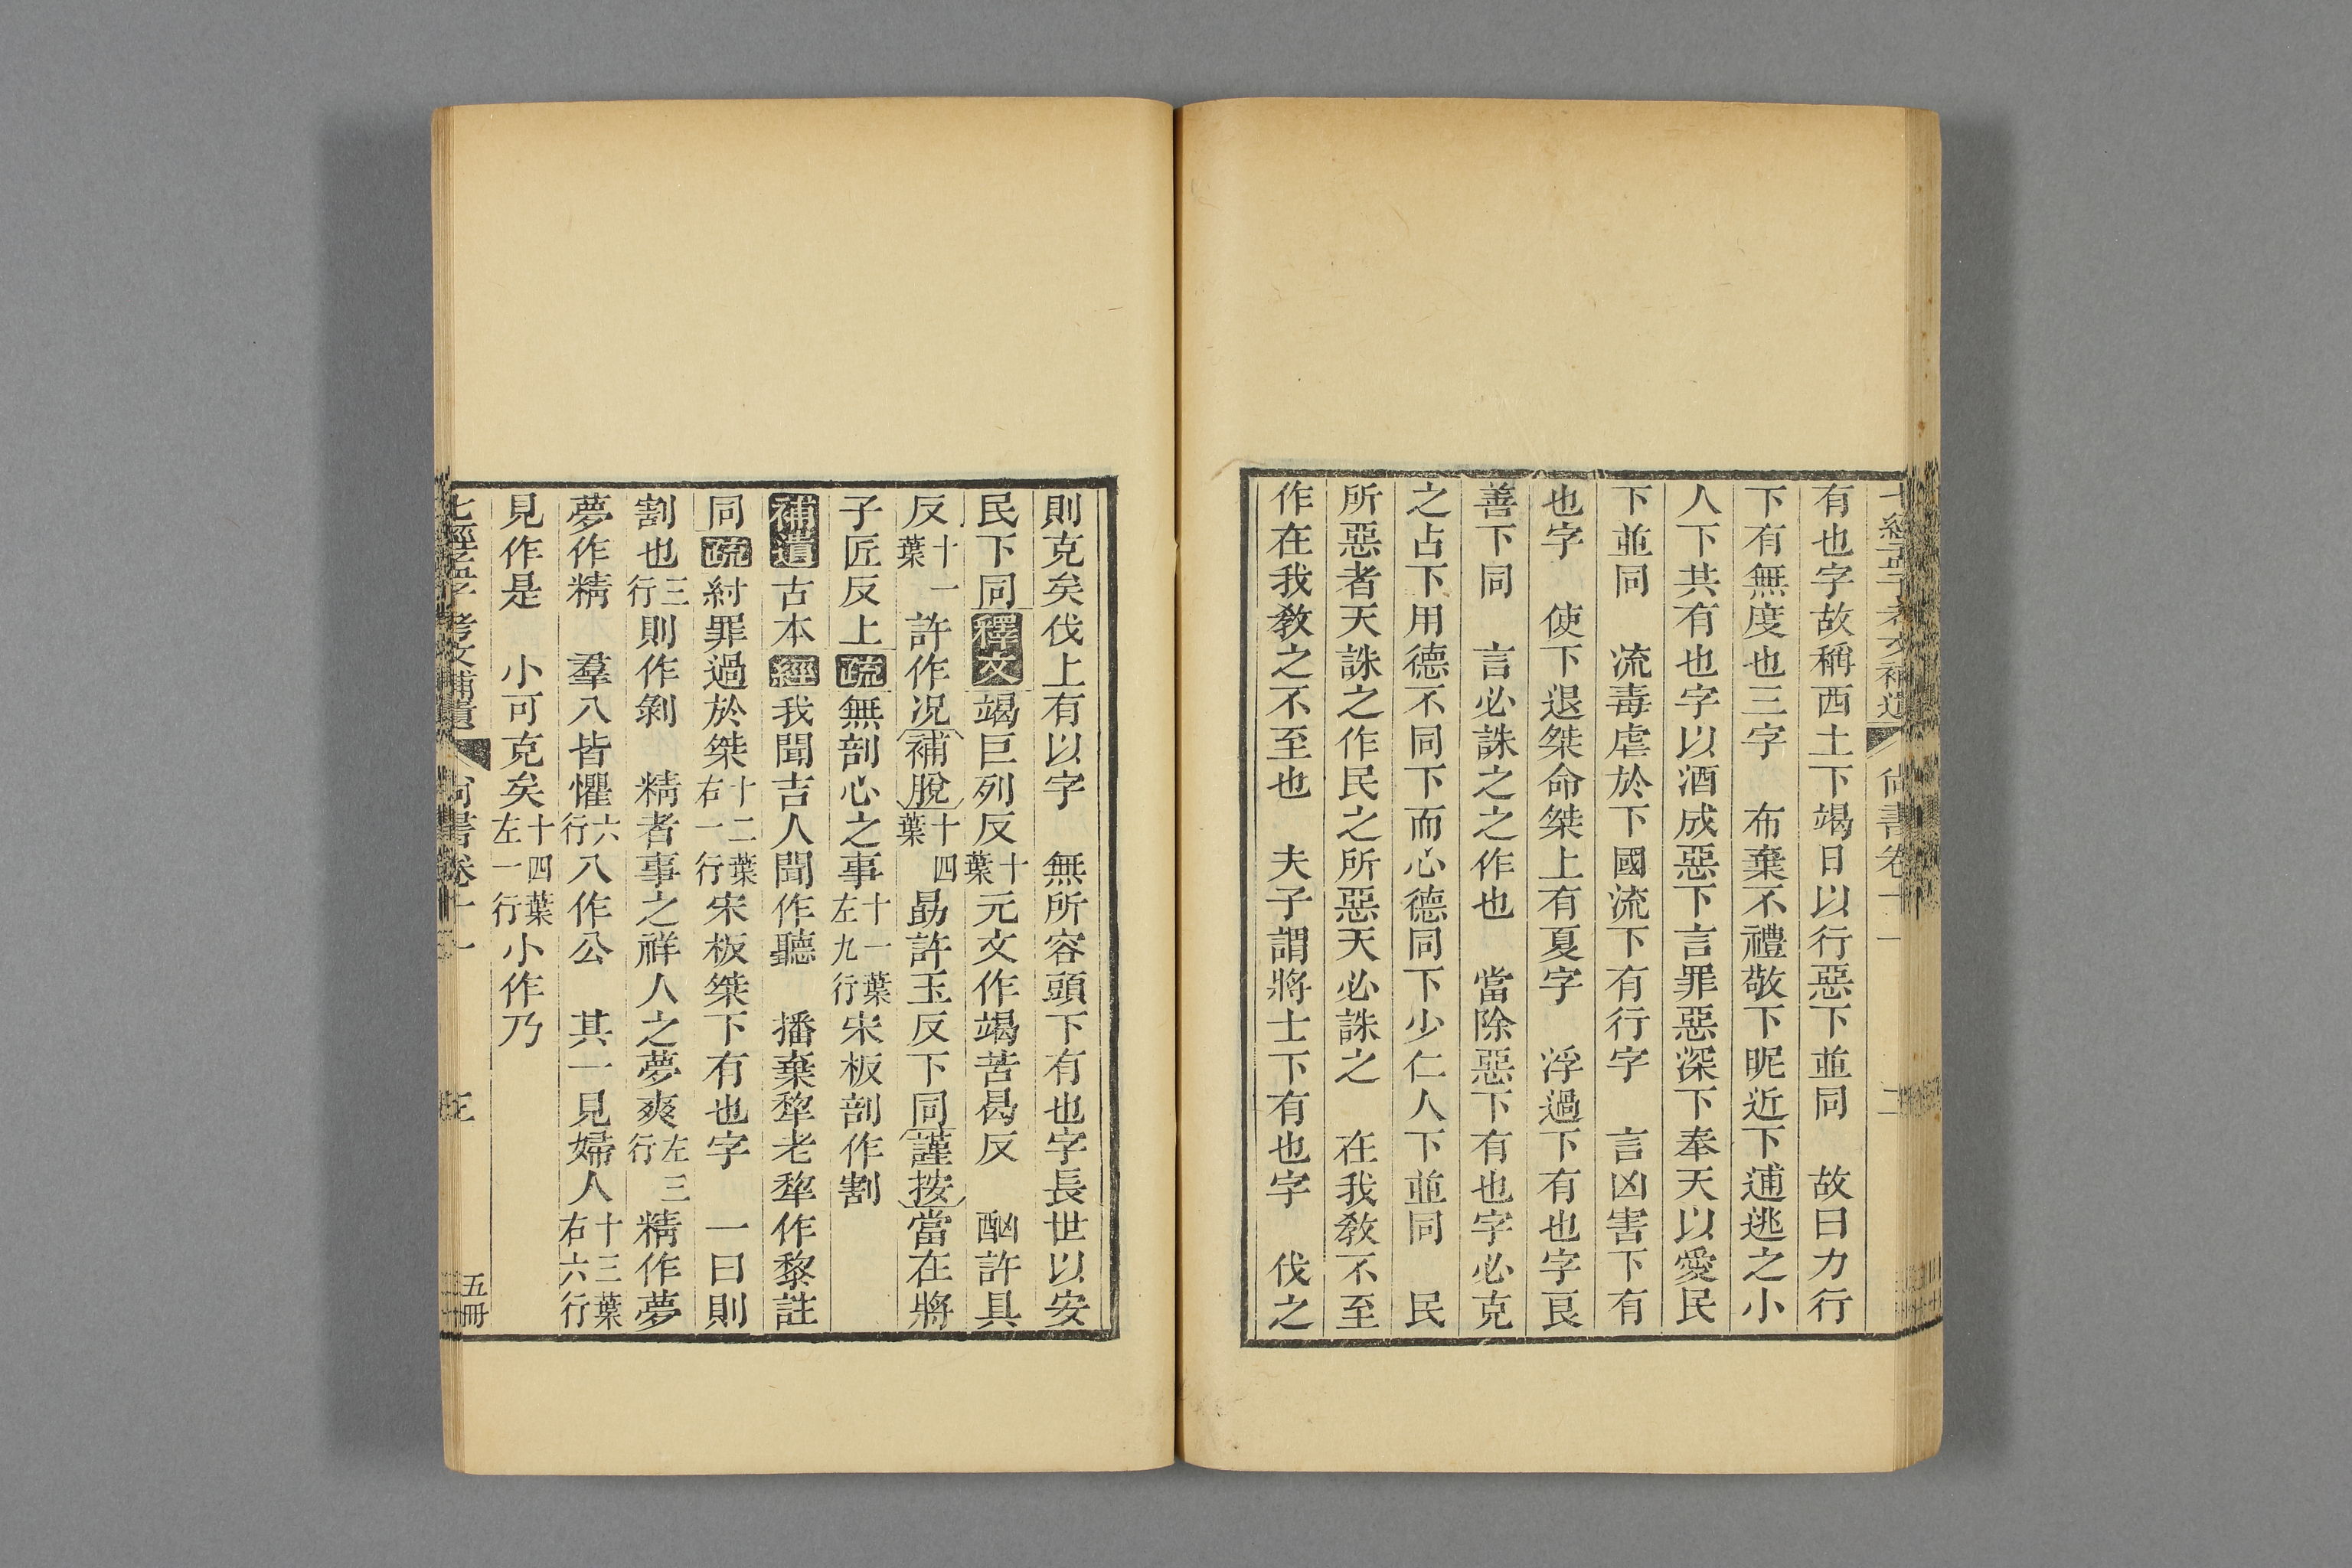 有也字故稱西土下竭日以行惡下並同　故曰力行
下有無度也三字　布棄不禮敬下昵近下逋逃之小
人下共有也字以酒成惡下言罪惡深下奉天以愛民
下並同　流毒虐於下國流下有行字　言凶害下有
也字　使下退桀命桀上有夏字　浮過下有也字良
善下同　言必誅之之作也　當除惡下有也字必克
之占下用德不同下而心德同下少仁人下並同　民
所惡者天誅之作民之所惡天必誅之　在我教不至
作在我教之不至也　夫子謂將士下有也字　伐之
則克矣伐上有以字　無所容頭下有也字長世以安
民下同釋文竭巨列反十葉元文作竭苦曷反　酗許具
反十一葉許作况補脫十四葉勗許玉反下同謹按當在將
子匠反上疏無剖心之事十一葉左九行宋板剖作割
補遺古本經我聞吉人聞作聽　播棄犂老犂作黎註
同疏紂罪過於桀十二葉右一行宋板桀下有也字　一曰則
割也三行則作剝　精者事之祥人之夢爽左三行精作夢
夢作精　羣八皆懼六行八作公　其一見婦人十三葉右六行
見作是　小可克矣十四葉左一行小作乃
七經孟子考文補遺　尚書卷十一　三　五冊